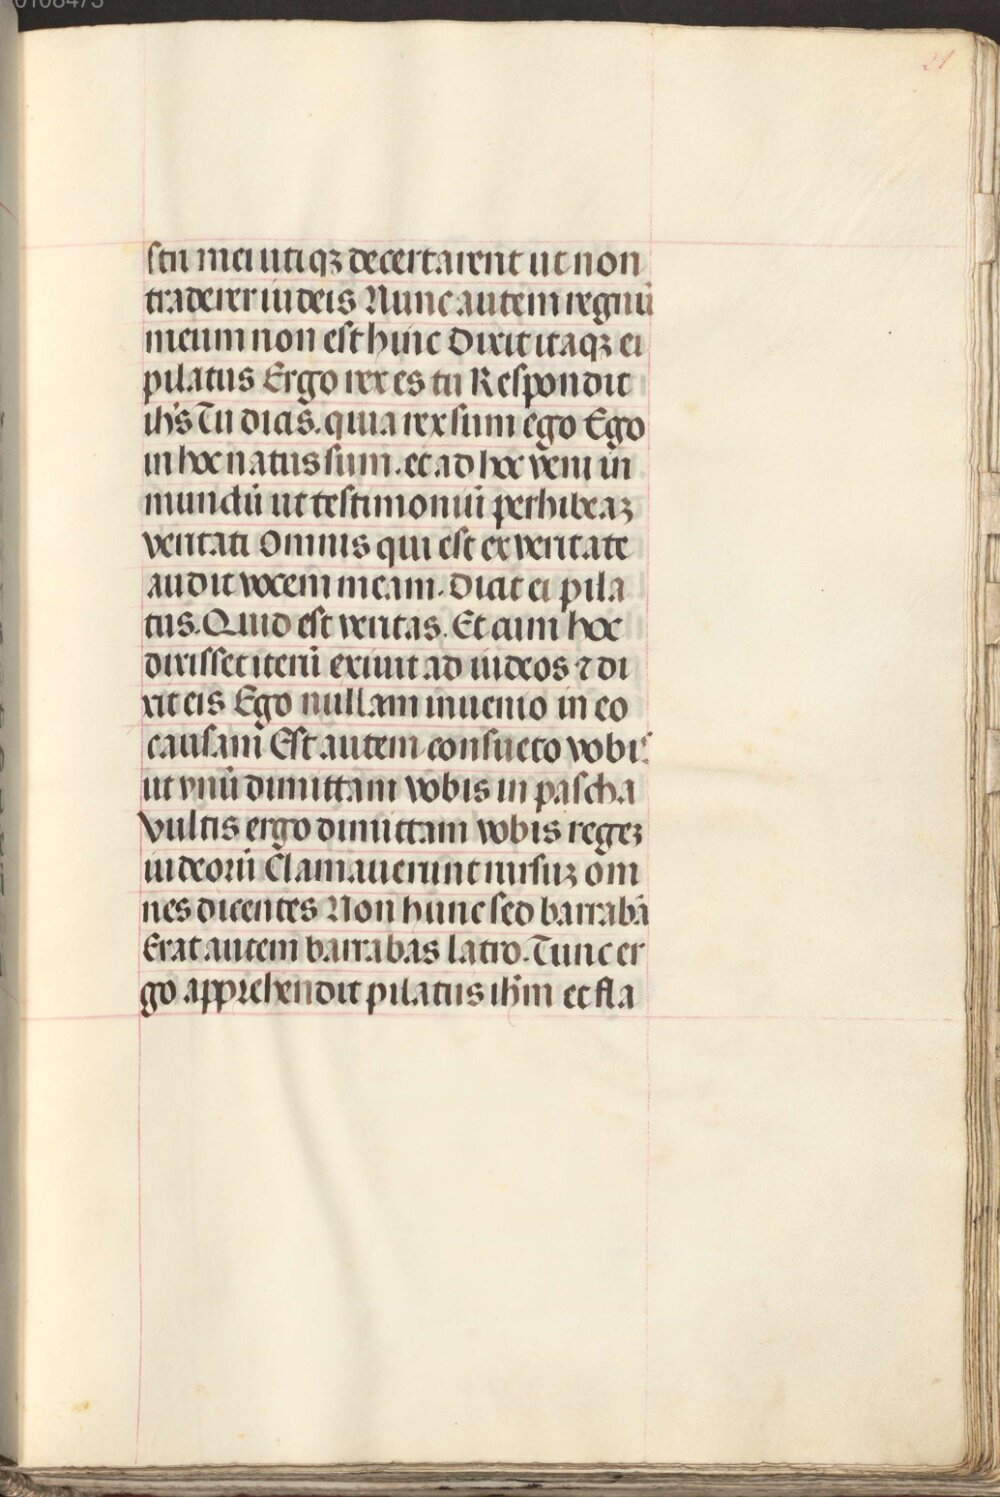 0108473
21
stri mei utiqꝫ decertarent ut non
traderer iudeis Nunc autem regnū
meum non est hinc Dixit itaqꝫ ei
pilatus Ergo rex es tu Respondit
ihs̄ Tu dicis. quia rex sum ego Ego
in hoc natus sum. et ad hoc veni in
mundū ut testimoniū perhibeaꝫ
veritati Omnis qui est ex veritate
audit vocem meam. Dicit ei pila
tus. Quid est veritas. Et cum hoc
dixisset iterū exiuit ad iudeos ⁊ di
xit eis Ego nullam inuenio in eo
causam Est autem consueto vobis
ut vnū dimittam vobis in pascha
Vultis ergo dimittam vobis regeꝫ
iudeorū Clamauerunt rursuꝫ om
nes dicentes Non hunc sed barrabā
Erat autem barrabas latro. Tunc er
go apprehendit pilatus ihm̄ et fla